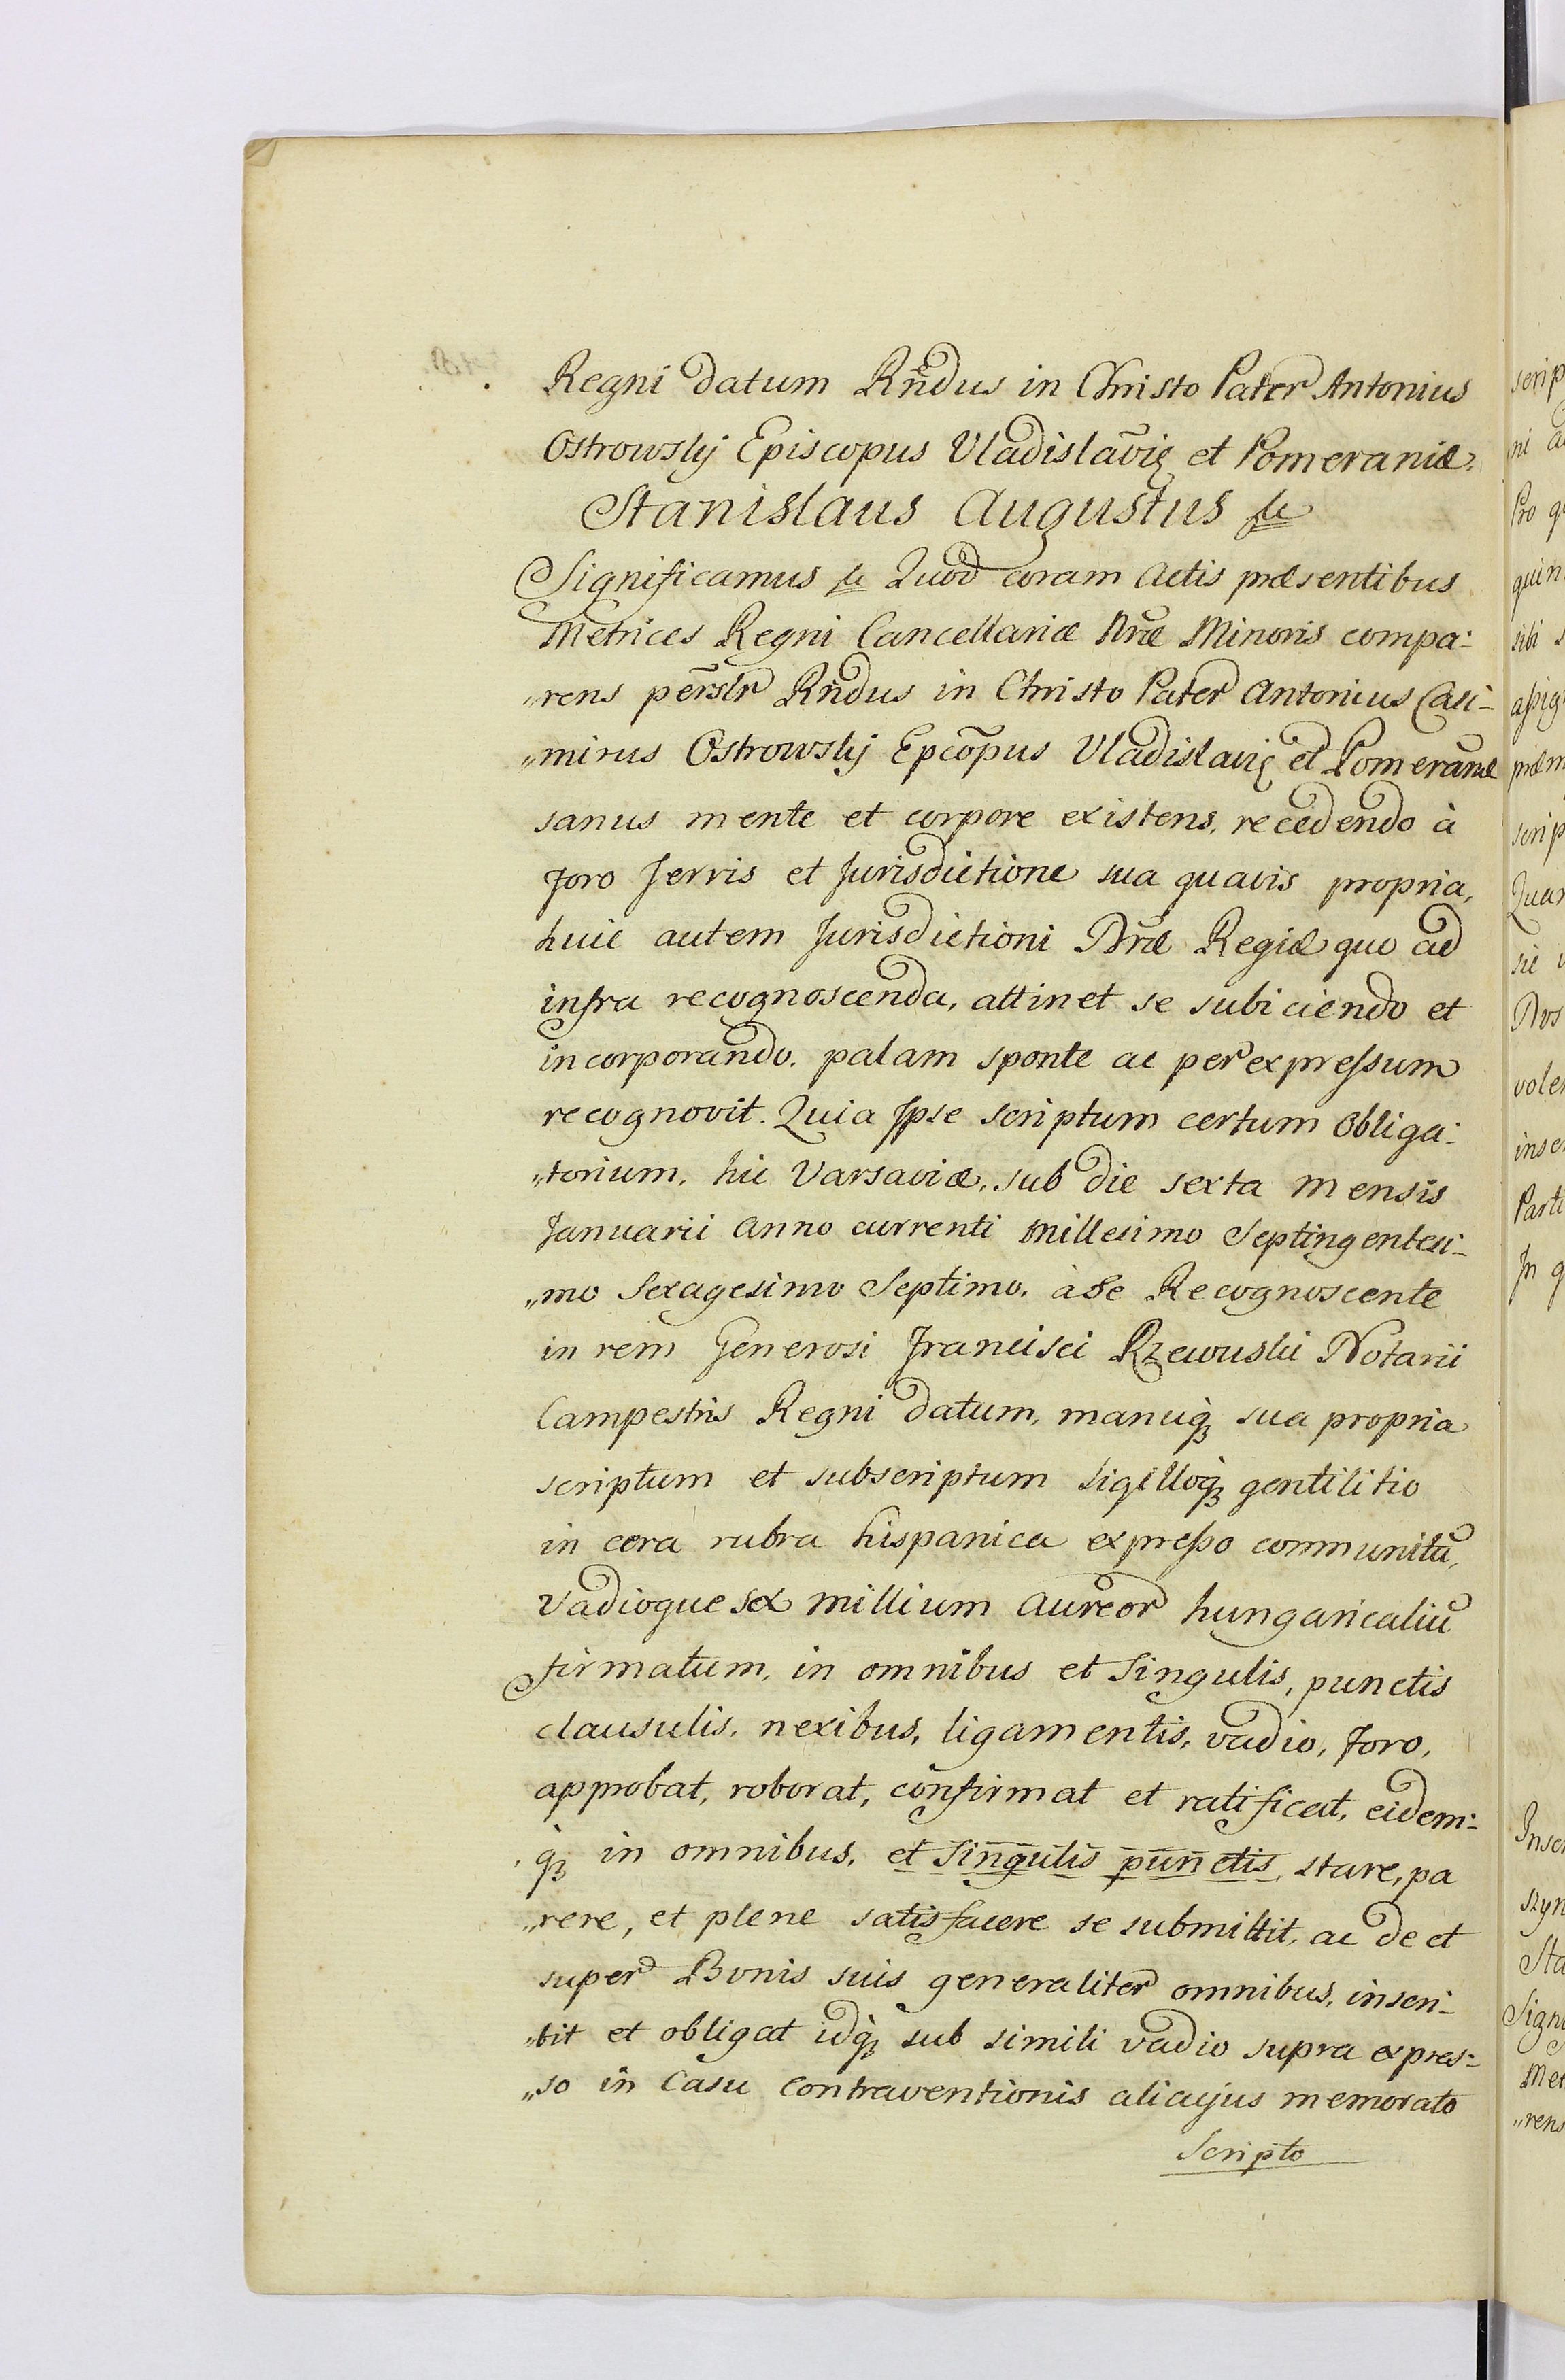 Regni datum Rñdus in Christo Pater Antonius
Ostrowskij Episcopus Vladislavię et Pomeraniæ.
Stanislaus Augustus &c
Significamus &c Quod coram Actis præsentibus
Metrices Regni Cancellariæ Nræ Minoris compa:
„rens persłr Rñdus in Christo Pater Antonius Casi-
„mirus Ostrowskij Epcõpus Vladislavię et Pomeraniæ
sanus mente et corpore existens, recedendo à
Foro Terris et Jurisdictione sua quavis propria,
huic autem Jurisdictioni Nræ Regiæ quo ad
infra recognoscenda, attinet se subiciendo et
incorporando. palam sponte ac per expressum
recognovit. Quia Ipse scriptum certum Obliga:
„torium, hic Varsaviæ, sub die sexta Mensis
Januarii Anno currenti Millesimo Septingentesi-
„mo Sexagesimo Septimo, à se Recognoscente
in rem Generosi Francisci Rzewuski Notarii
Campestris Regni datum, manuq̃ sua propria
scriptum et subscriptum sigilloq̃ gentilitio
in cera rubra hispanica expresso communitũ,
Vadioque sex Millium Aureor hungaricaliũ
firmatum, in omnibus et Singulis, punctis
clausulis, nexibus, ligamentis, vadio, Foro,
approbat, roborat, confirmat et ratificat, eidem:
q̃ in omnibus, et Singulis punctis, stare, pa
„rere, et plene satisfacere se submittit, ac de et
super Bonis suis generaliter omnibus, inscri-
„bit et obligat idq̃ sub simili vadio supra expres:
„so in Casu Contraventionis alicujus memorato
Scripto